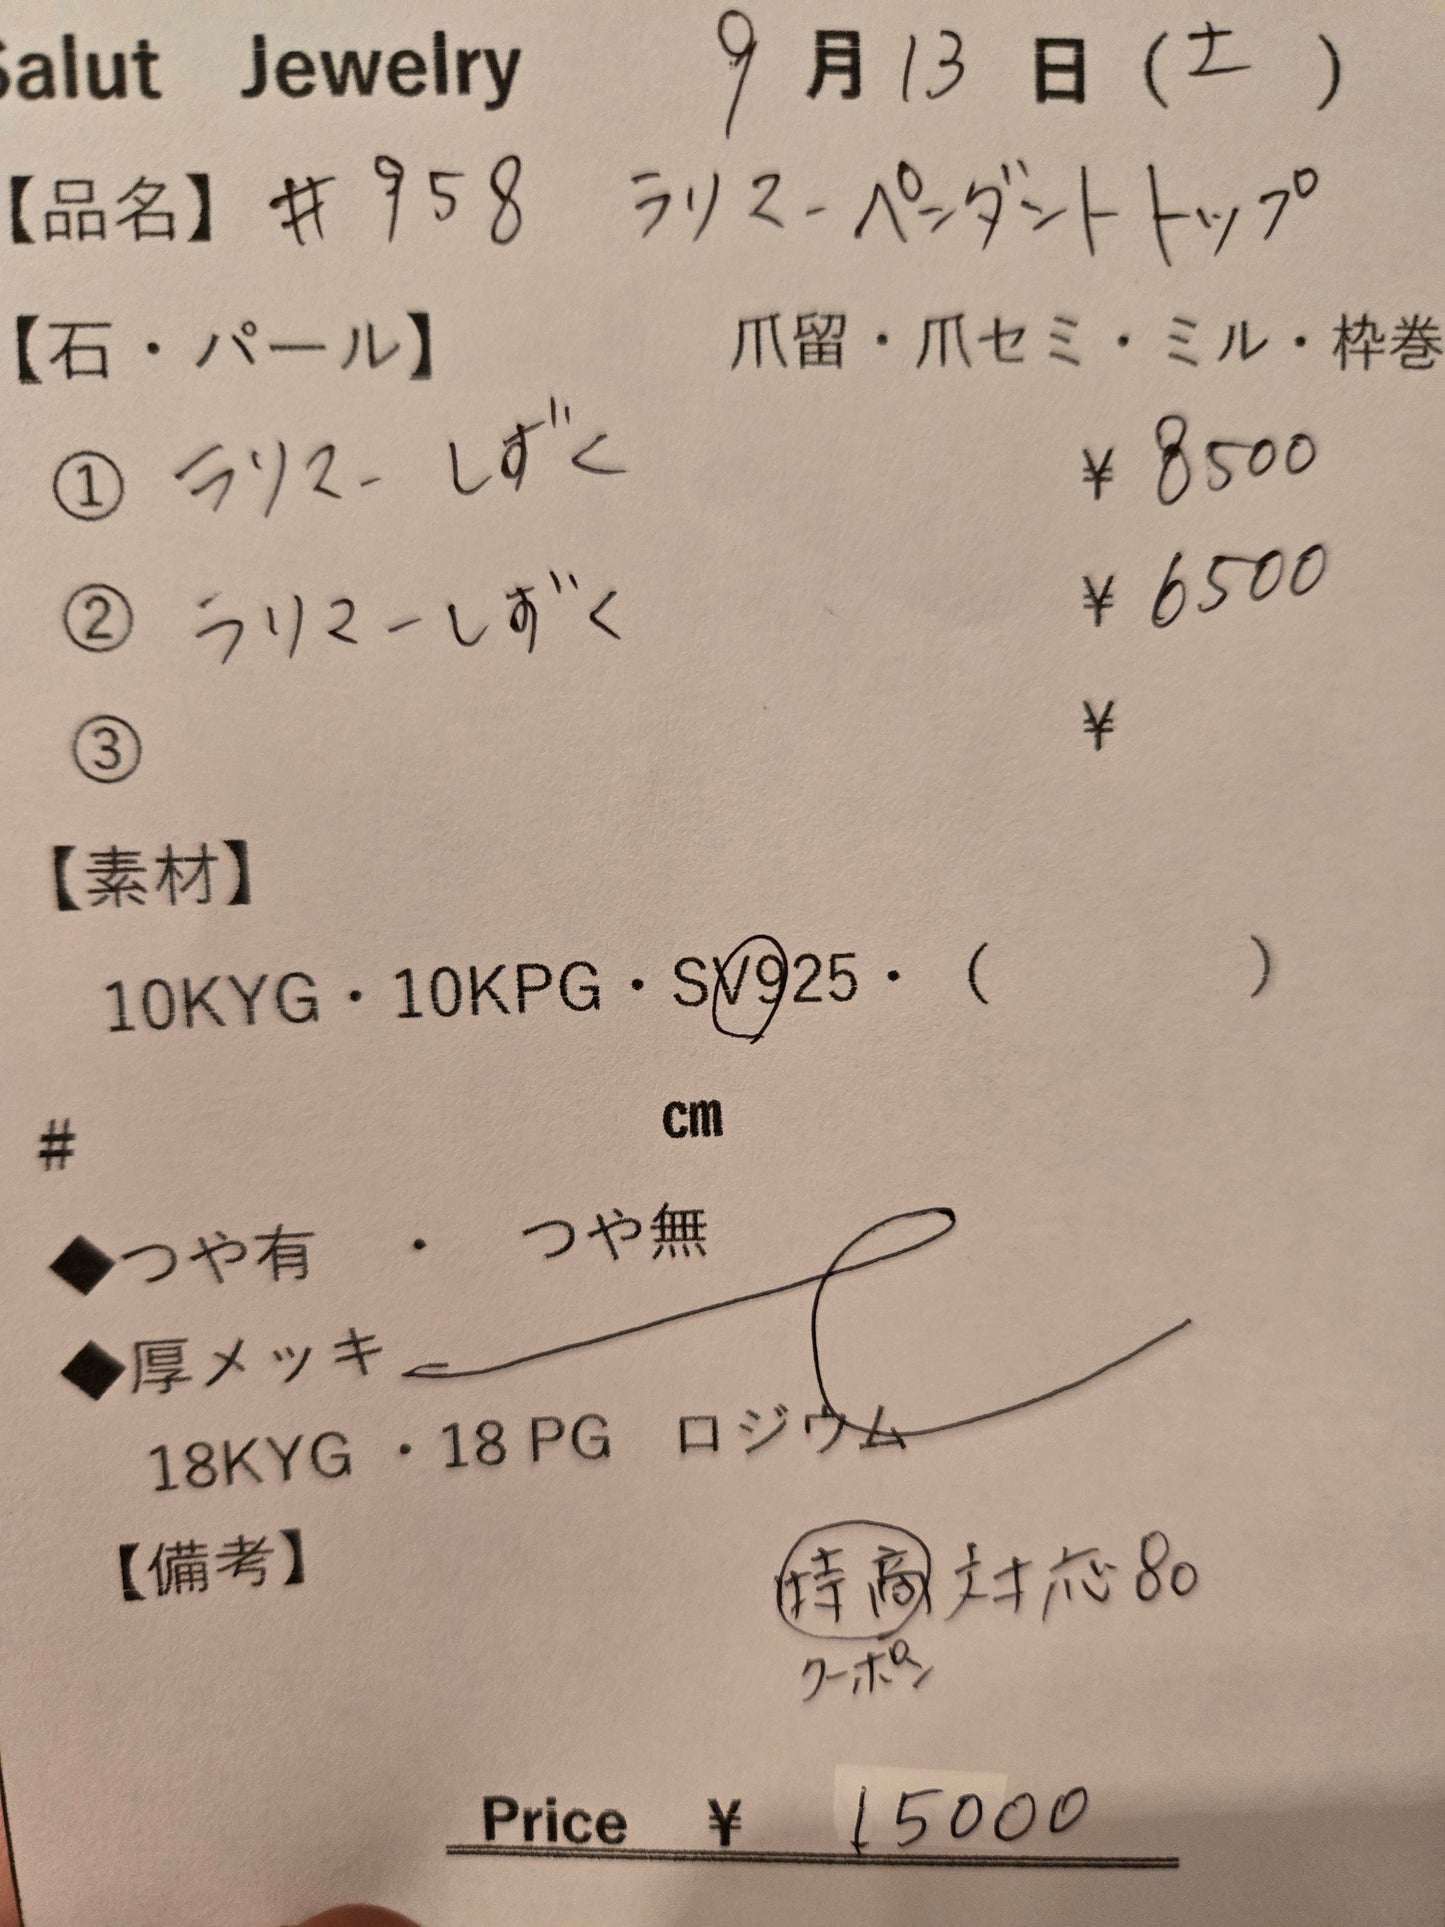 Salut Jewelry 9月13日(土)
【品名】#958 ラリマーペンダントトップ
【石・パール】 爪留・爪セミ・ミル・枠巻
① ラリマーしずく ¥8500
② ラリマーしずく ¥6500
③ ¥
【素材】
10KYG・10KPG・SV925・( )
# cm
◆つや有 ・ つや無
◆厚メッキ
18KYG ・18 PG ロジウム
【備考】 特商対応80
クーポン
Price ¥ 15000